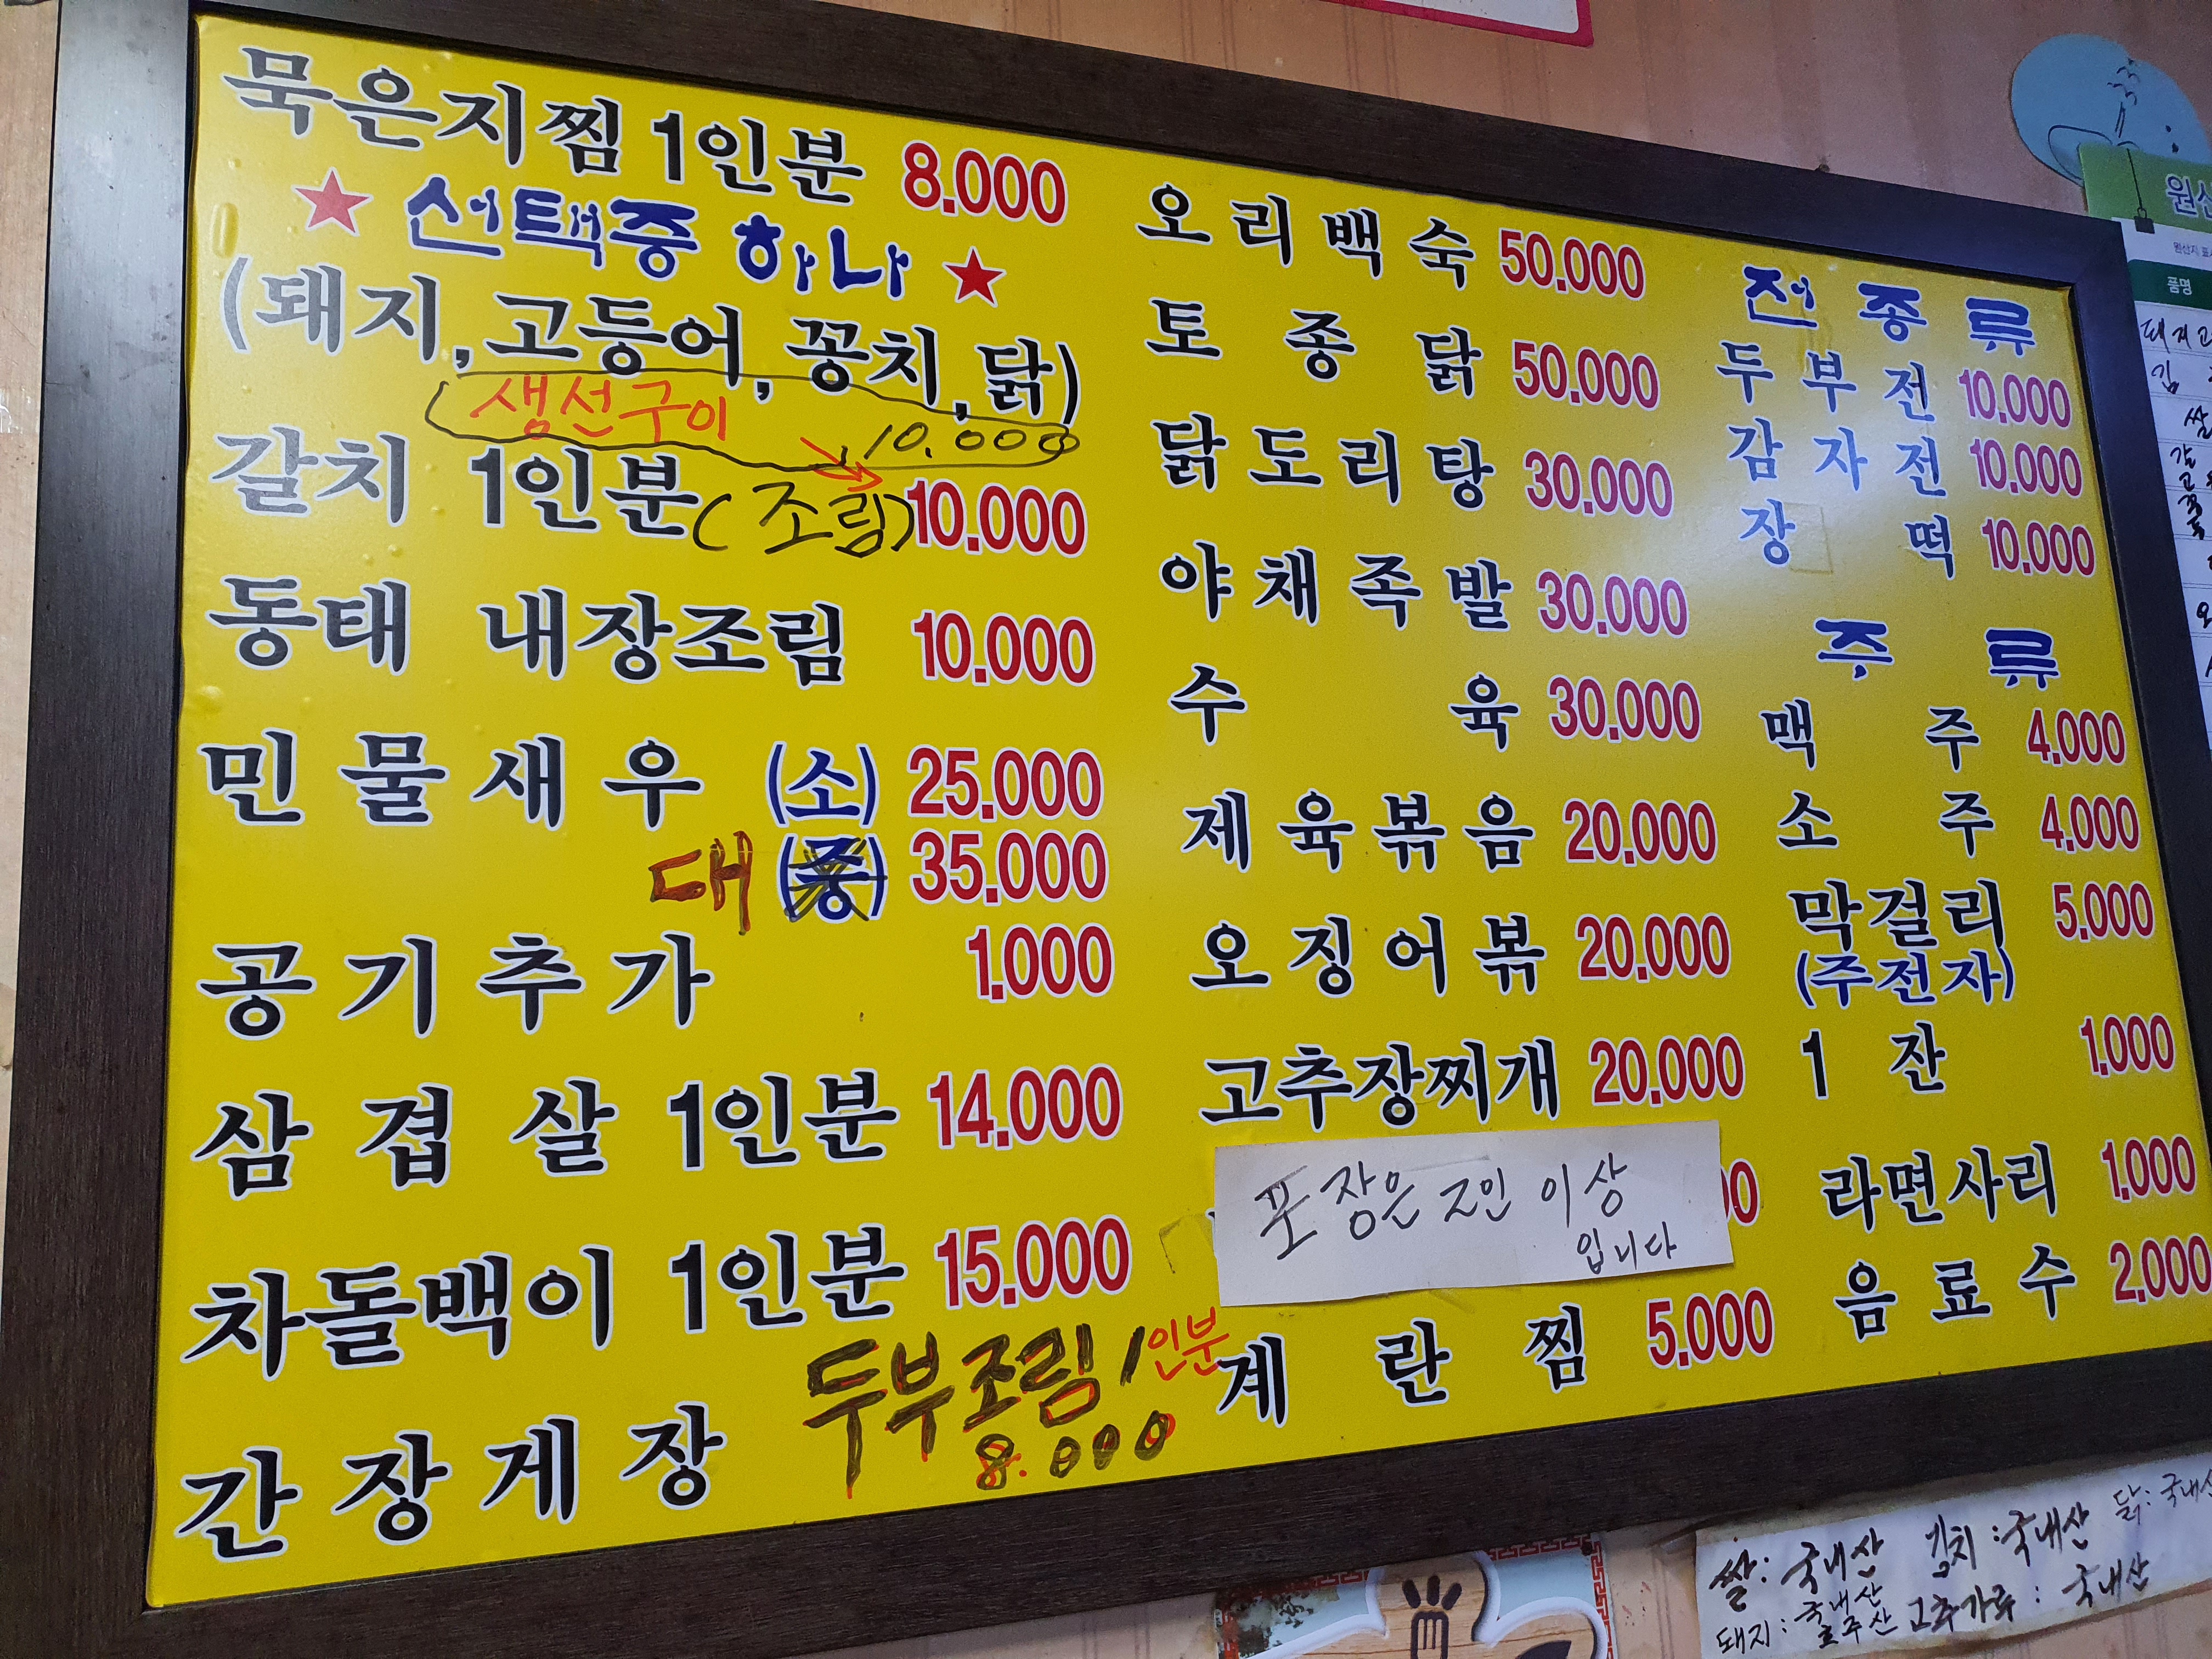 묵은지찜 1인분 8.000
★ 선택중 하나 ★
(돼지, 고등어, 꽁치, 닭)
생선구이 10.000
갈치 1인분 (조림) 10.000
동태 내장조림 10.000
민물새우 (소) 25.000
대 (중) 35.000
공기추가 1.000
삼겹살 1인분 14.000
차돌백이 1인분 15.000
간장게장
두부조림 1인분
8.000
오리백숙 50.000
토종닭 50.000
닭도리탕 30.000
야채족발 30.000
수육 30.000
제육볶음 20.000
오징어볶 20.000
고추장찌개 20.000
포장은 2인 이상
입니다
계란찜 5.000
전종류
두부전 10.000
감자전 10.000
장떡 10.000
주류
맥주 4.000
소주 4.000
막걸리 5.000
(주전자)
1잔 1.000
라면사리 1.000
음료수 2.000
품명
쌀: 국내산 김치: 국내산 닭: 국내산
돼지: 국내산 호주산 고추가루: 국내산